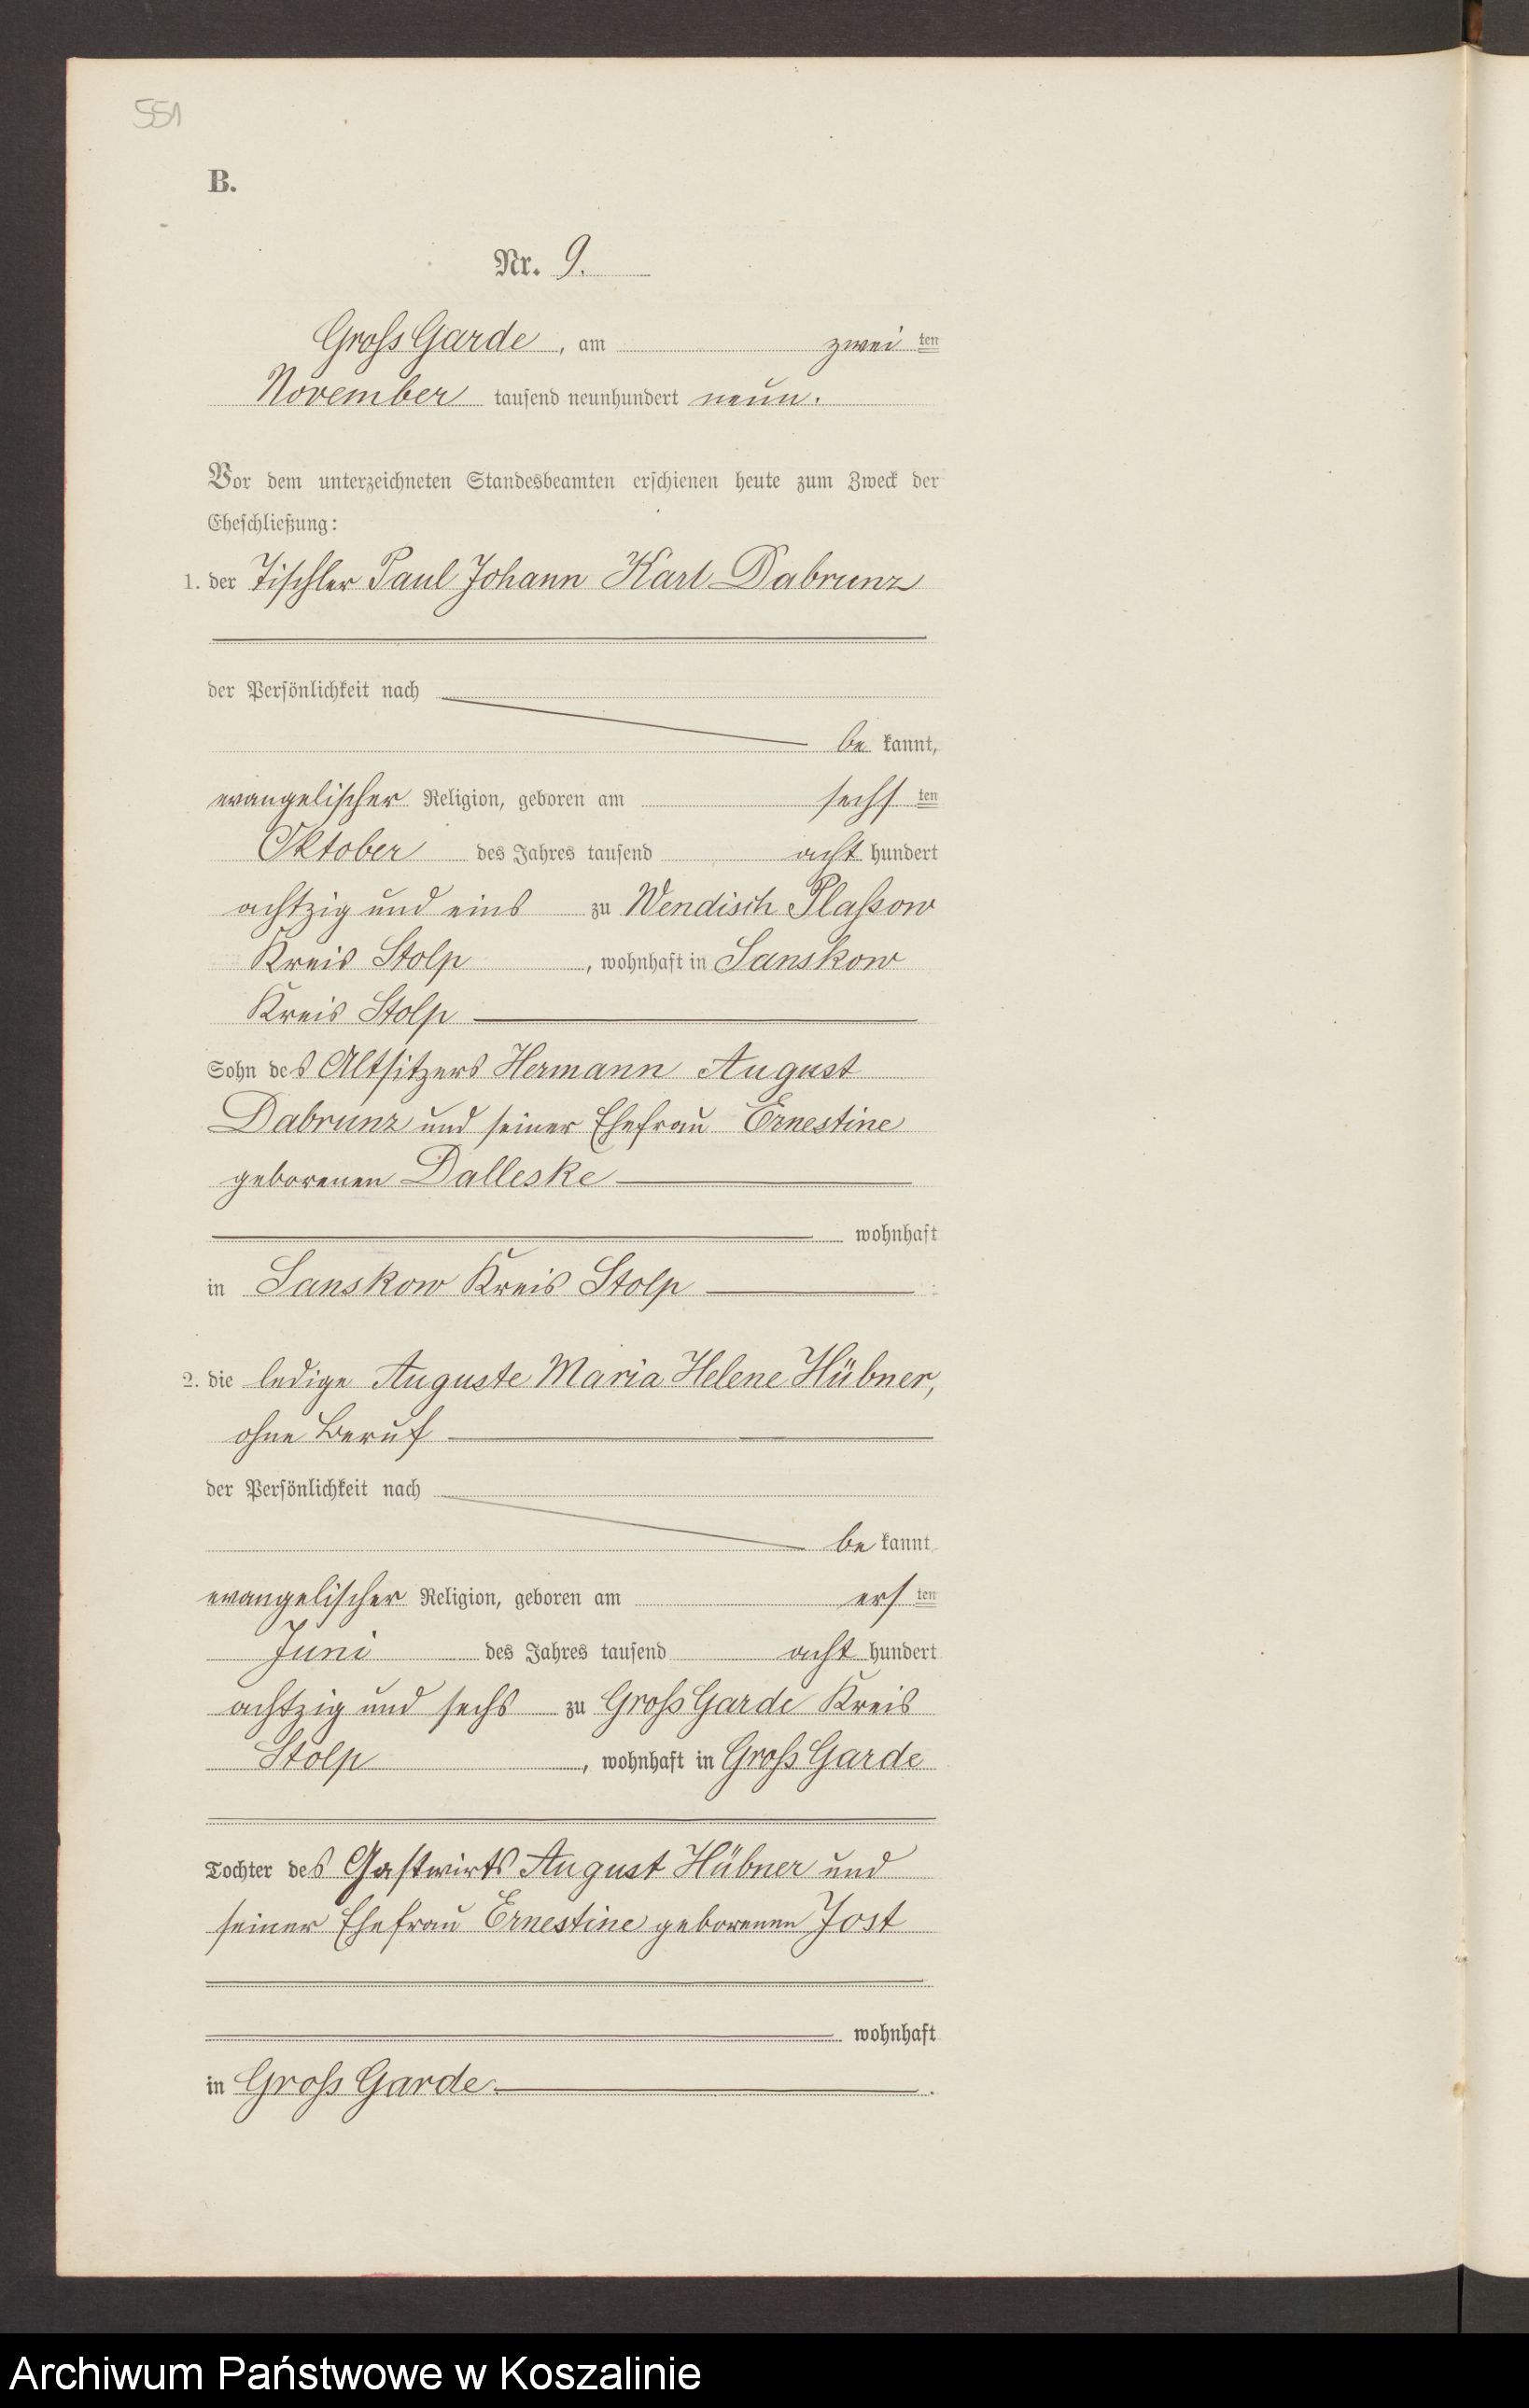 551
B.
Nr. 9.
Gross Garde, am zwei ten
November tausend neunhundert neun.
Vor dem unterzeichneten Standesbeamten erschienen heute zum Zweck der
Eheschließung:
1. der Tischler Paul Johann Karl Dabrunz
der Persönlichkeit nach
be kannt,
evangelischer Religion, geboren am sechs ten
Oktober des Jahres tausend acht hundert
achtzig und eins zu Wendisch Plassow
Kreis Stolp, wohnhaft in Sanskow
Kreis Stolp
Sohn des Altsitzers Hermann August
Dabrunz und seiner Ehefrau Ernestine
geborenen Dalleske
wohnhaft
in Sanskow Kreis Stolp
2. die ledige Auguste Maria Helene Hübner,
ohne Beruf
der Persönlichkeit nach
be kannt
evangelischer Religion, geboren am ers ten
Juni des Jahres tausend acht hundert
achtzig und sechs zu Gross Garde Kreis
Stolp, wohnhaft in Gross Garde
Tochter des Gastwirts August Hübner und
seiner Ehefrau Ernestine geborenen Jost
wohnhaft
in Gross Garde.
Archiwum Państwowe w Koszalinie